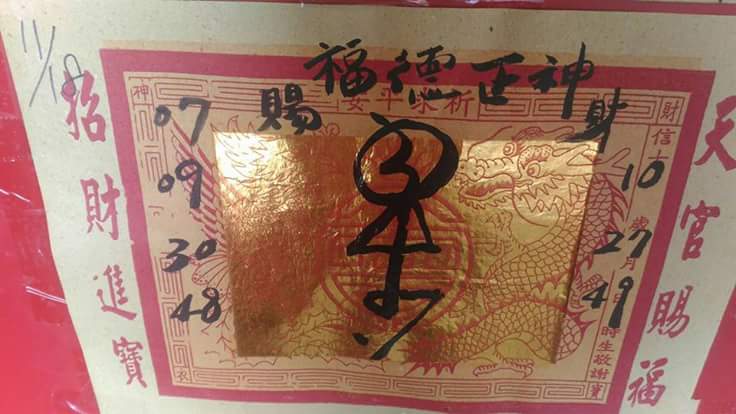 11/18
福德正神
賜
財
祈求平安
招財進寶
天官賜福
神
財
信士
歲
月
日
時生敬謝
農
寶
07
09
30
48
10
27
49